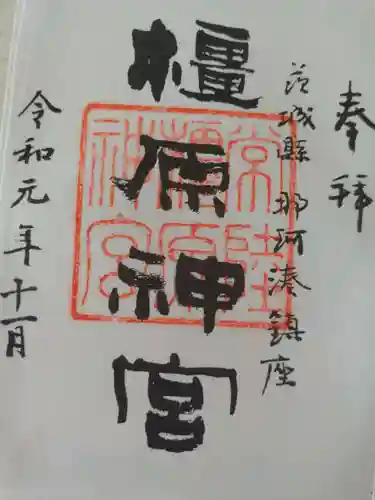 奉拝
茨城縣 那珂湊鎮座
橿原神宮
常陸
橿原
神宮
令和元年十一月